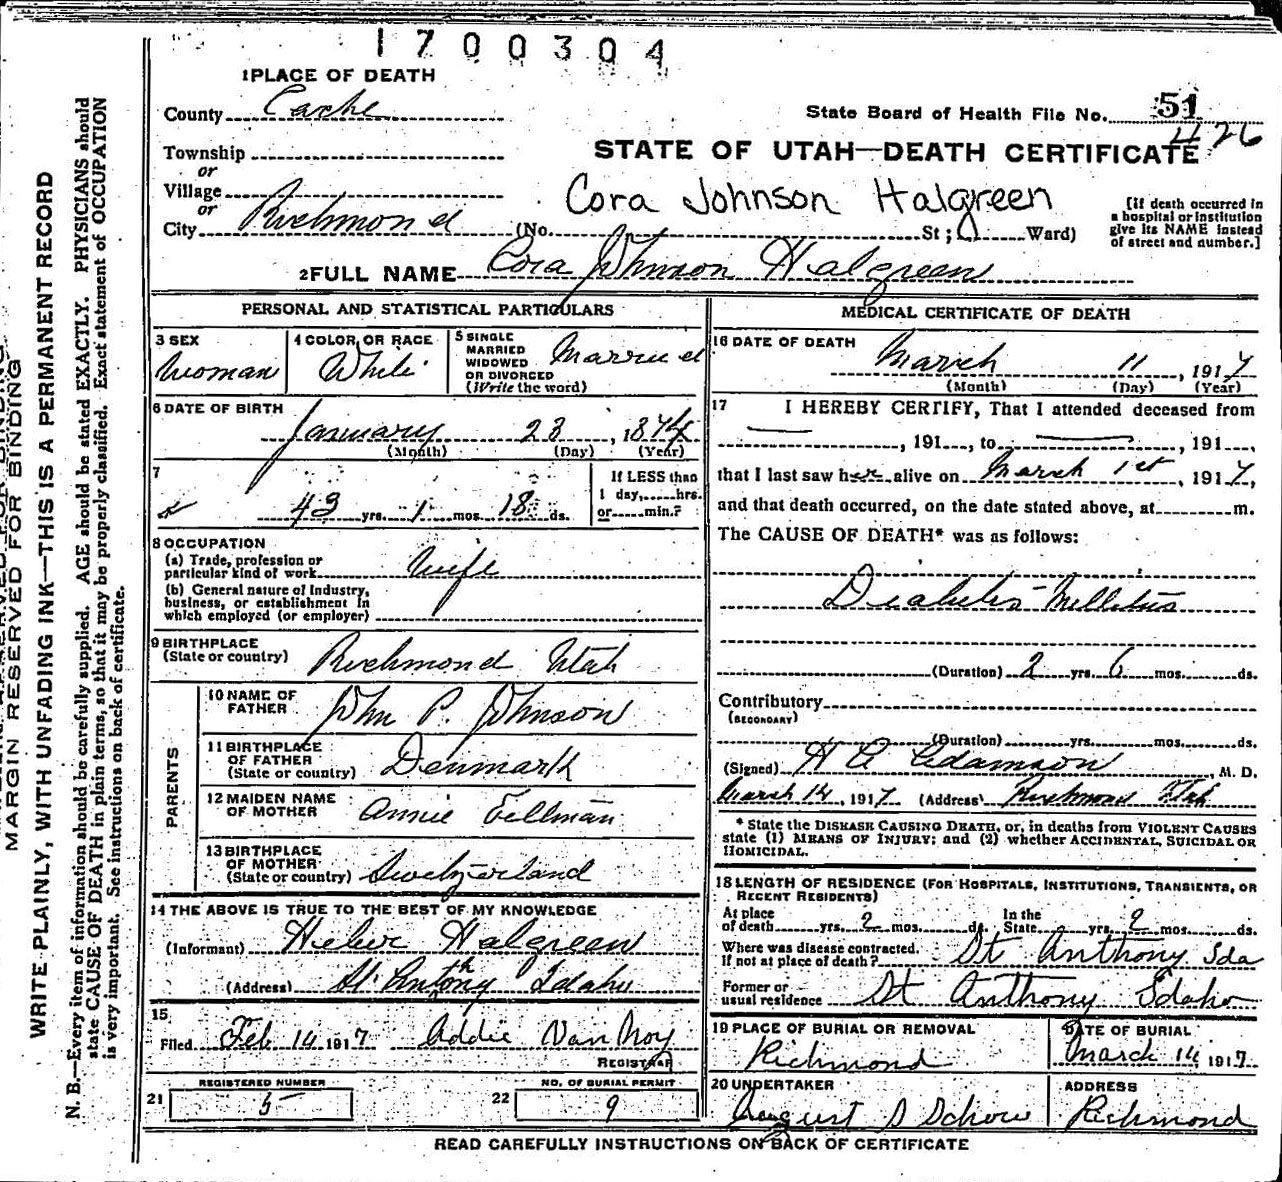 1700304
1 PLACE OF DEATH
County Cache
State Board of Health File No. 51
426
Township
or
STATE OF UTAH—DEATH CERTIFICATE
Village
or
Cora Johnson Halgreen
City Richmond (No. St; Ward)
[If death occurred in
a hospital or institution
give its NAME instead
of street and number.]
2 FULL NAME Cora Johnson Halgreen
PERSONAL AND STATISTICAL PARTICULARS
3 SEX
Woman
4 COLOR OR RACE
White
5 SINGLE
MARRIED
WIDOWED
OR DIVORCED
(Write the word)
Married
6 DATE OF BIRTH
January 23, 1874
(Month) (Day) (Year)
7
43 yrs. 1 mos. 18 ds.
If LESS than
1 day, hrs.
or min.?
8 OCCUPATION
(a) Trade, profession or
particular kind of work Wife
(b) General nature of Industry,
business, or establishment in
which employed (or employer)
9 BIRTHPLACE
(State or country) Richmond Utah
PARENTS
10 NAME OF
FATHER John P. Johnson
11 BIRTHPLACE
OF FATHER
(State or country) Denmark
12 MAIDEN NAME
OF MOTHER Annie Fellman
13 BIRTHPLACE
OF MOTHER
(State or country) Swetzerland
14 THE ABOVE IS TRUE TO THE BEST OF MY KNOWLEDGE
(Informant) Heber Halgreen
(Address) St Anthony Idaho
15
Filed Feb 14 1917 Addie Van Noy
REGISTRAR
REGISTERED NUMBER
21 5
NO. OF BURIAL PERMIT
22 9
MEDICAL CERTIFICATE OF DEATH
16 DATE OF DEATH
March 11, 1917
(Month) (Day) (Year)
17 I HEREBY CERTIFY, That I attended deceased from
, 191 , to , 191 ,
that I last saw her alive on March 1st, 1917,
and that death occurred, on the date stated above, at m.
The CAUSE OF DEATH* was as follows:
Diabetes Mellitus
(Duration) 2 yrs. 6 mos. ds.
Contributory
(SECONDARY)
(Duration) yrs. mos. ds.
(Signed) H A Adamson, M. D.
March 14, 1917 (Address) Richmond Utah
* State the DISEASE CAUSING DEATH, or, in deaths from VIOLENT CAUSES
state (1) MEANS OF INJURY; and (2) whether ACCIDENTAL, SUICIDAL OR
HOMICIDAL.
18 LENGTH OF RESIDENCE (FOR HOSPITALS, INSTITUTIONS, TRANSIENTS, OR
RECENT RESIDENTS)
At place
of death yrs. 2 mos. ds. In the
State yrs. 2 mos. ds.
Where was disease contracted.
If not at place of death? St Anthony Ida
Former or
usual residence St Anthony Idaho
19 PLACE OF BURIAL OR REMOVAL
Richmond
DATE OF BURIAL
March 14 1917
20 UNDERTAKER
August S Schow
ADDRESS
Richmond
READ CAREFULLY INSTRUCTIONS ON BACK OF CERTIFICATE
MARGIN RESERVED FOR BINDING
WRITE PLAINLY, WITH UNFADING INK—THIS IS A PERMANENT RECORD
N. B.—Every item of information should be carefully supplied. AGE should be stated EXACTLY. PHYSICIANS should
state CAUSE OF DEATH in plain terms, so that it may be properly classified. Exact statement of OCCUPATION
is very important. See instructions on back of certificate.